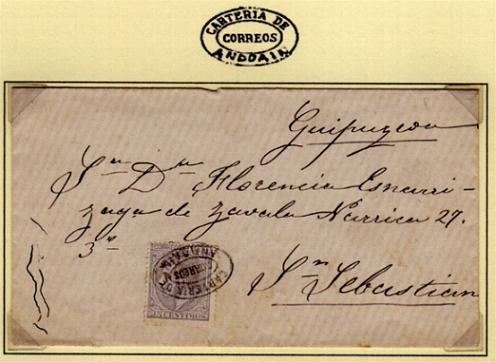 CARTERIA DE
CORREOS
ANDOAIN
Guipuzcoa
Sra Da Florencia Esnarri-
zaga de Zavala Narrica 27.
3o
Sn Sebastian
CARTERIA DE
CORREOS
ANDOAIN
CENTIMOS